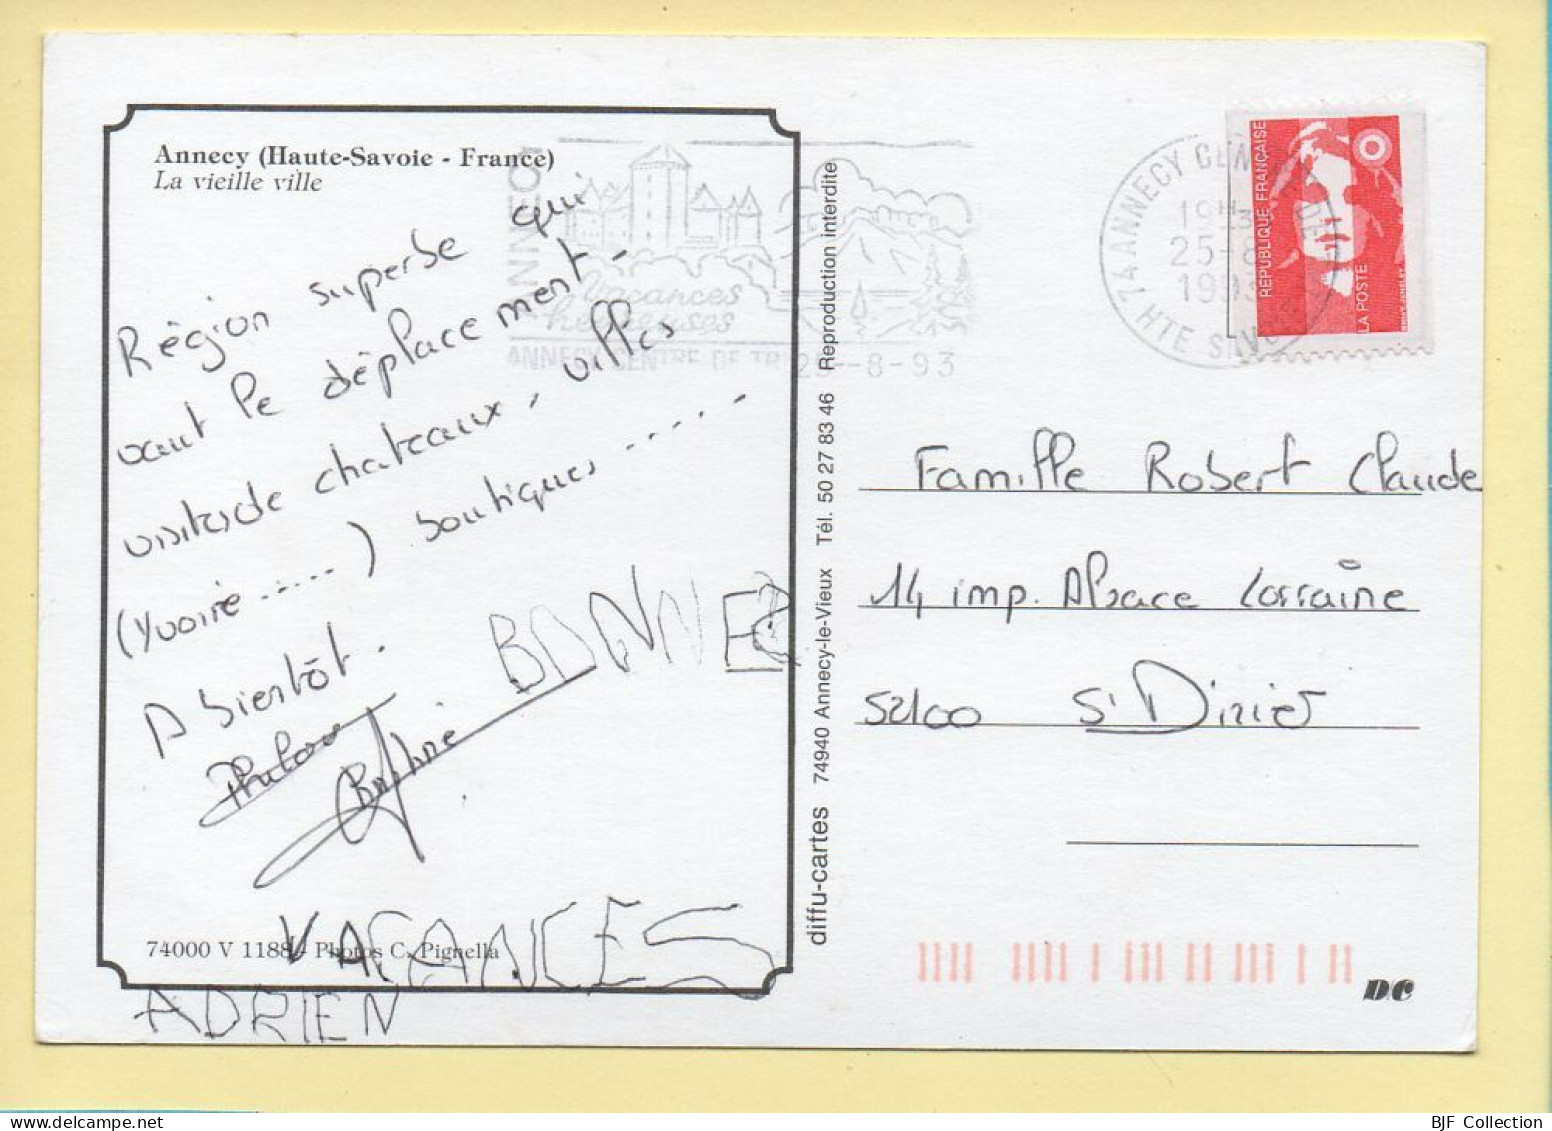 Annecy (Haute-Savoie - France)
La vieille ville
Région superbe qui
vaut le déplacement -
visites de chateaux, villes
(Yvoire ......) boutiques .....
A bientôt.
BONNE
VACANCES
ADRIEN
74000 V 1188 - Photos C. Pignella
diffu-cartes 74940 Annecy-le-Vieux Tél. 50 27 83 46 Reproduction interdite
ANNECY
Vacances
heureuses
ANNECY CENTRE DE TR 25--8-93
74 ANNECY CENTRE DE
19H
25-8
1993
HTE SAVOIE
RÉPUBLIQUE FRANÇAISE
LA POSTE
Famille Robert Claude
14 imp. Alsace Lorraine
52100 St Dizier
DC
BJF Collection